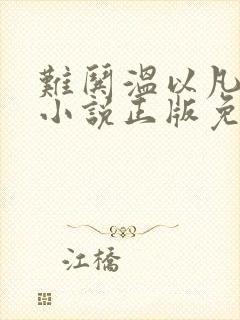 難鬨溫以凡
小說正版免
江橋